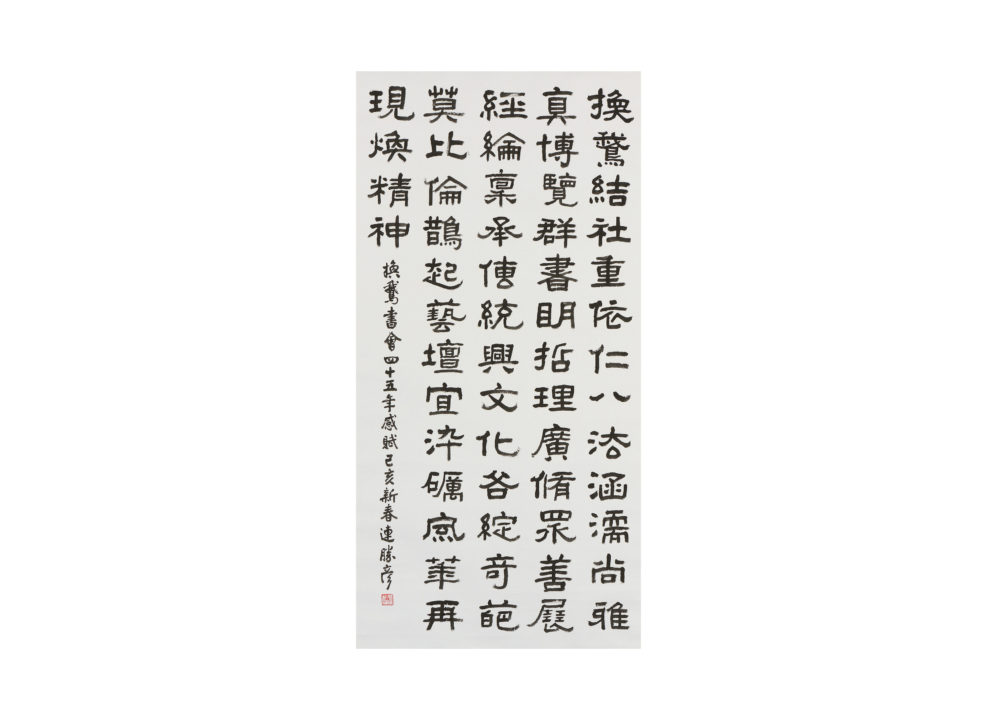 換鵞結社重依仁八法涵濡尚雅
真博覽群書明哲理廣脩眾善展
經綸稟承傳統興文化各綻奇葩
莫比倫鵲起藝壇宜淬礪風華再
現煥精神
換鵞書會四十五年感賦己亥新春連勝彥